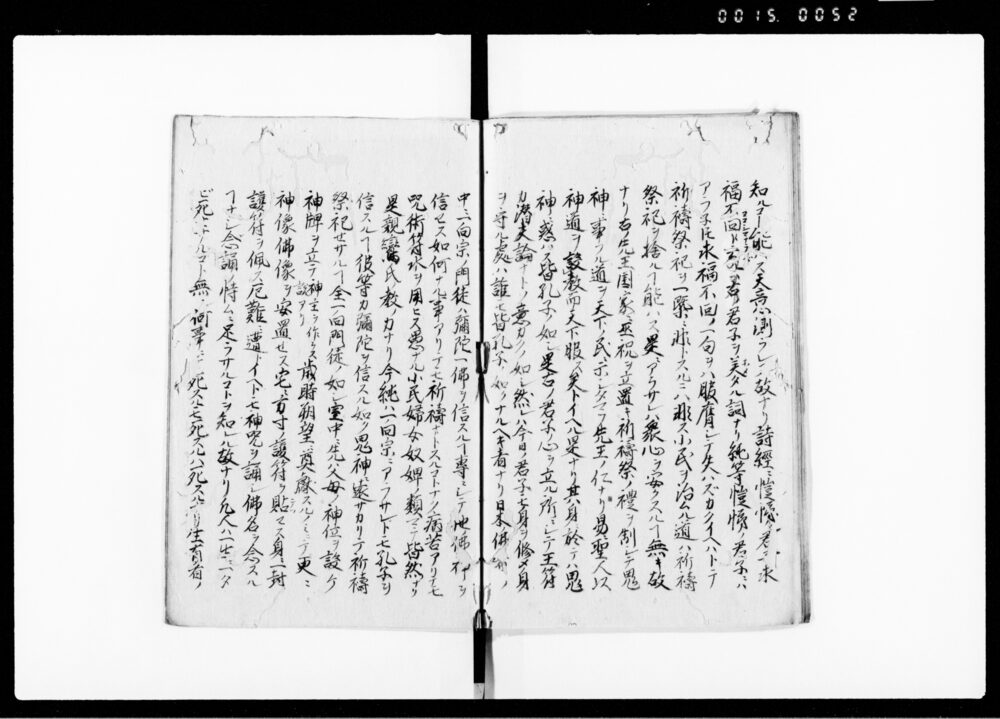 0015.0052
知ルコ能ハス天意心測ラレハ故ナリ詩經ニ愷悌君子求
福不回ト云ルハ君子ヲ美タル詞ナリ純等愷悌ノ君子ニハ
アラネ𪜈求福不回ノ一句ヲハ服膺シテ失ハズカクイヘハトテ
祈禱祭祀ヲ一槩ニ非トスルニハ非ス小民ヲ治ムル道ハ祈禱
祭祀ヲ捨ルコ能ハス是ニアラサレハ衆心ヲ安クスルコ無キ故
ナリ古先王國家巫祝ヲ立置キ祈禱祭ノ禮ヲ制シテ鬼
神ニ事フル道ヲ天下ノ民ニ示シタマフ先王ノ仁ナリ易ニ聖人以
神道ヲ設教而天下服ス矣トイヘル是ナリ其身於テハ鬼
神ニ惑ハス皆孔子ノ如シ是古ノ君子心ヲ立ル所ニシテ王符
カ潛夫論ナトノ意カクノ如シ然レハ今日ノ君子モ身ヲ修メ身
ヲ守ル處ハ誰モ皆孔子ノ如クナルヘキ者ナリ日本佛者ノ
中ニ一向宗ノ門徒ハ彌陀一佛ヲ信スルコ專ニシテ他佛神ヲ
信セス如何ナル事アリテモ祈禱ナトスルコトナク病苦アリテモ
呪術符水ヲ用ヒス愚ナル小民婦女奴婢ノ類マテ皆然ナリ
是親鸞氏ノ教ノカナリ今純ハ一向宗ニアラサレトモ孔子ヲ
信スルコ彼等カ彌陀ヲ信スル如ク鬼神ニ遠サカリテ祈禱
祭祀セサルコ全ク一向門徒ノ如シ室中ニ先父母ノ神位ヲ設ケ
神牌ヲ立テ神主ヲ作ラス說アリ歳時朔望ニ奠獻スルノミニテ更ニ
神像佛像ヲ安置セス宅ニ方寸ノ護符ヲ貼マス身ニ一封
護符ヲ佩ス厄難ニ遭トイヘトモ神呪ヲ誦シ佛名ヲ念スル
コナシ念誦ノ恃ムニ足ラサルコトヲ知レル故ナリ凡人ハ一生ニ一タ
ビ死